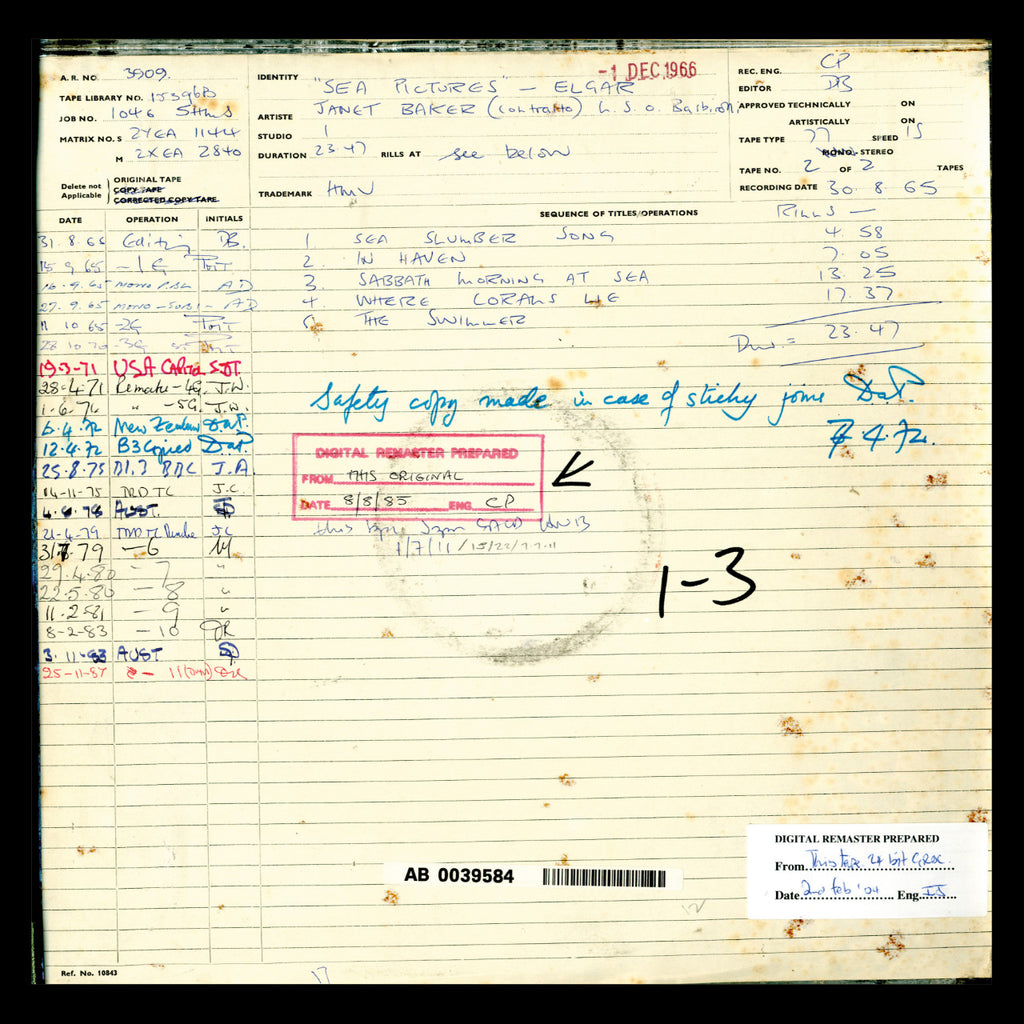 A.R. NO. 3909.
TAPE LIBRARY NO. 15396B
JOB NO. 1046
MATRIX NO. S 2YEA 1144
M 2XEA 2840
Delete not Applicable
ORIGINAL TAPE
COPY TAPE
CORRECTED COPY TAPE
IDENTITY "SEA PICTURES" - ELGAR
-1 DEC 1966
ARTISTE JANET BAKER (contralto) L.S.O. Barbirolli
STUDIO 1
DURATION 23.47 RILLS AT see below
TRADEMARK HMV
REC. ENG. CP
EDITOR DB
APPROVED TECHNICALLY ON
ARTISTICALLY ON
TAPE TYPE 77 SPEED 15
MONO STEREO
TAPE NO. 2 OF 2 TAPES
RECORDING DATE 30.8.65
DATE OPERATION INITIALS
SEQUENCE OF TITLES/OPERATIONS
RILLS —
31.8.65 Editing DB.
15.9.65 -1G
16.9.65 MONO AD
27.9.65 MONO AD
11 10 65 -2G
28 10 70 -3G
19-3-71 USA CAPITOL
28-4-71 Remake -4G. J.W.
1.6.71 " -5G. J.W.
6.4.72 New Zealand DaP.
12.4.72 B3 Copied DaP.
25.8.75 D1.3 BBC J.A.
14-11-75 J.C.
4.6.76 AUST.
21-4-79 J.C.
31/7.79 -6
29.4.80 -7 "
22.5.80 -8 "
11.2.81 -9 "
8-2-83 -10
3.11.83 AUST
25-11-87
1 SEA SLUMBER SONG 4.58
2. IN HAVEN 7.05
3. SABBATH MORNING AT SEA 13.25
4. WHERE CORALS LIE 17.37
5 THE SWIMMER
Dur = 23.47
Safety copy made in case of sticky joins DaP.
7 4.72.
DIGITAL REMASTER PREPARED
FROM THIS ORIGINAL
DATE 8/8/85 ENG. CP
this tape SACD
1/7/11
1-3
AB 0039584
DIGITAL REMASTER PREPARED
From This tape 24 bit
Date 2nd Feb '04 Eng.
Ref. No. 10843